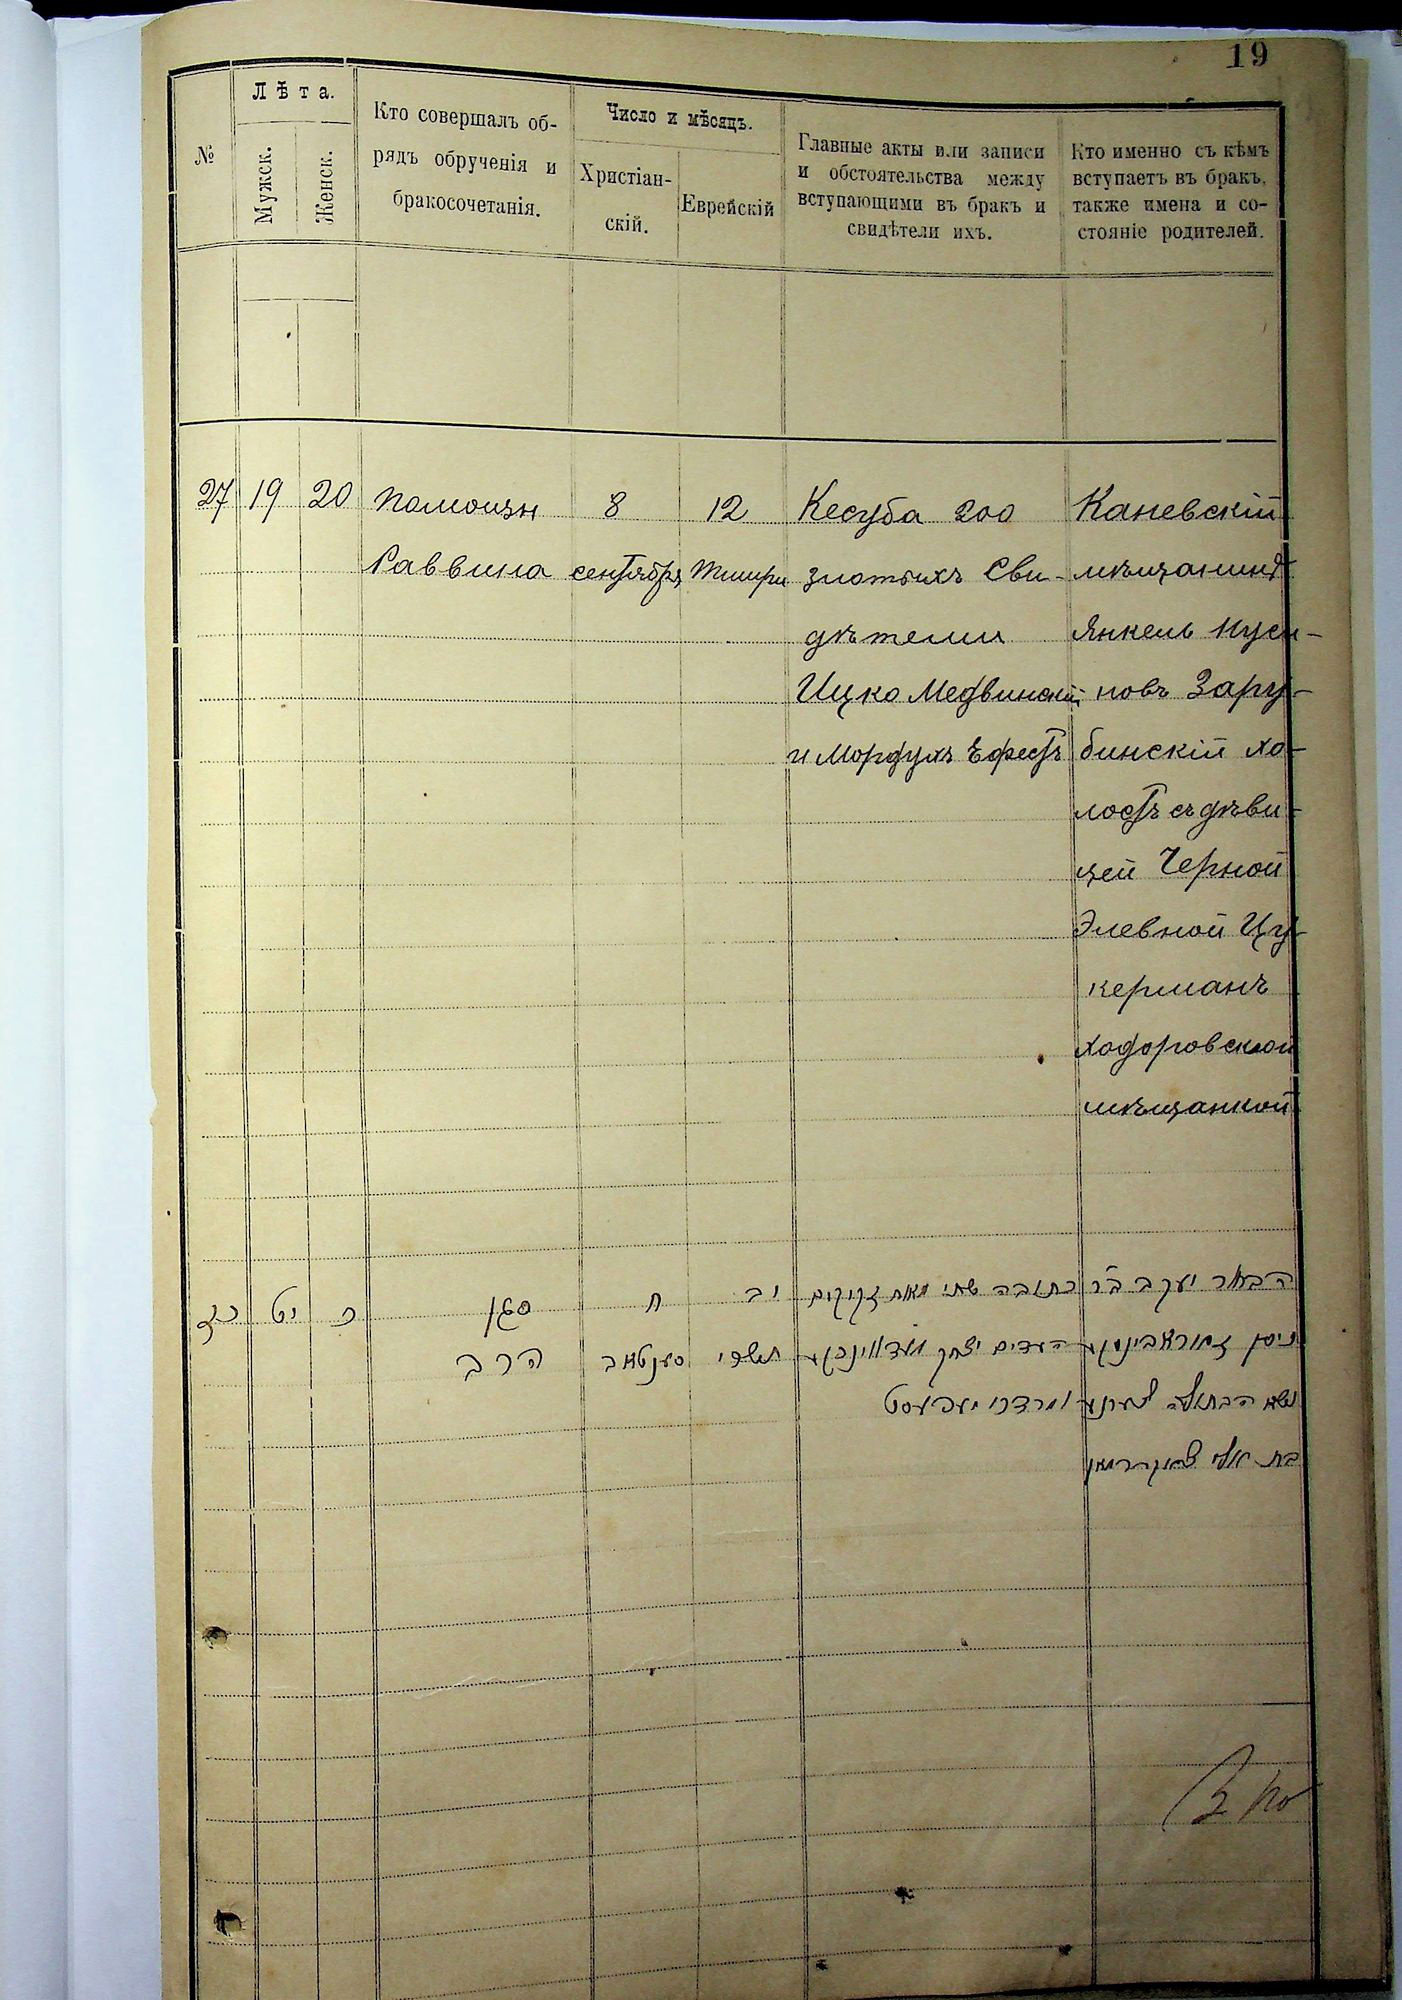 19
№
Лѣта.
Мужск.
Женск.
Кто совершалъ об-
рядъ обрученія и
бракосочетанія.
Число и мѣсяцъ.
Христіан-
скій.
Еврейскій
Главные акты или записи
и обстоятельства между
вступающими въ бракъ и
свидѣтели ихъ.
Кто именно съ кѣмъ
вступаетъ въ бракъ,
также имена и со-
стояніе родителей.
27 19 20
Помощн
Раввина
8
сентября
12
Тишри
Кесуба 200
злотыхъ Сви-
дѣтели
Ицко Медвинскій
и Мордухъ Ефестъ
Каневскій
мѣщанинъ
Янкель Нуси-
новъ Зару-
бинскій хо-
лостъ съ дѣви-
цей Черной
Элевной Цу-
керманъ
Ходоровской
мѣщанкой
כז
יט
כ
סגן
הרב
ח
סענטאב
יב
תשרי
כתובה שתי מאות זקוקים
העדים יצחק מעדווינסקע
ומרדכי יעפעסט
הבחור יעקב ב״ר
ניסן זארובינסקע
נשא הבתולה טשערנע
בת אלי צוקערמאן